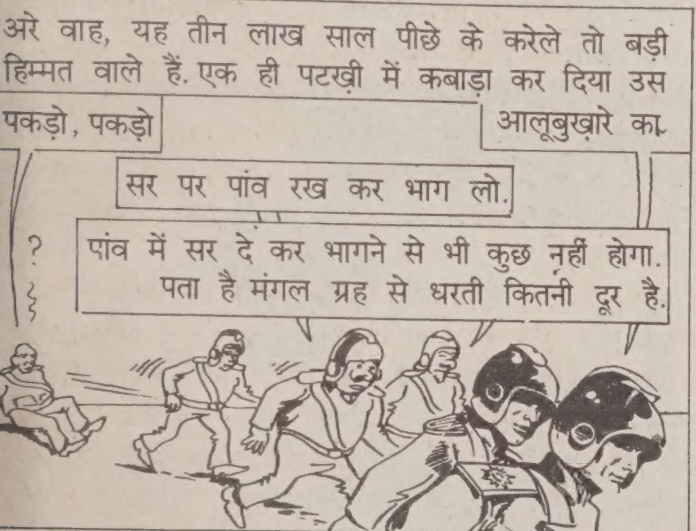 अरे वाह, यह तीन लाख साल पीछे के करेले तो बड़ी
हिम्मत वाले हैं. एक ही पटख़ी में कबाड़ा कर दिया उस
आलूबुख़ारे का.
पकड़ो, पकड़ो
सर पर पांव रख कर भाग लो.
?
पांव में सर दे कर भागने से भी कुछ नहीं होगा.
पता है मंगल ग्रह से धरती कितनी दूर है.